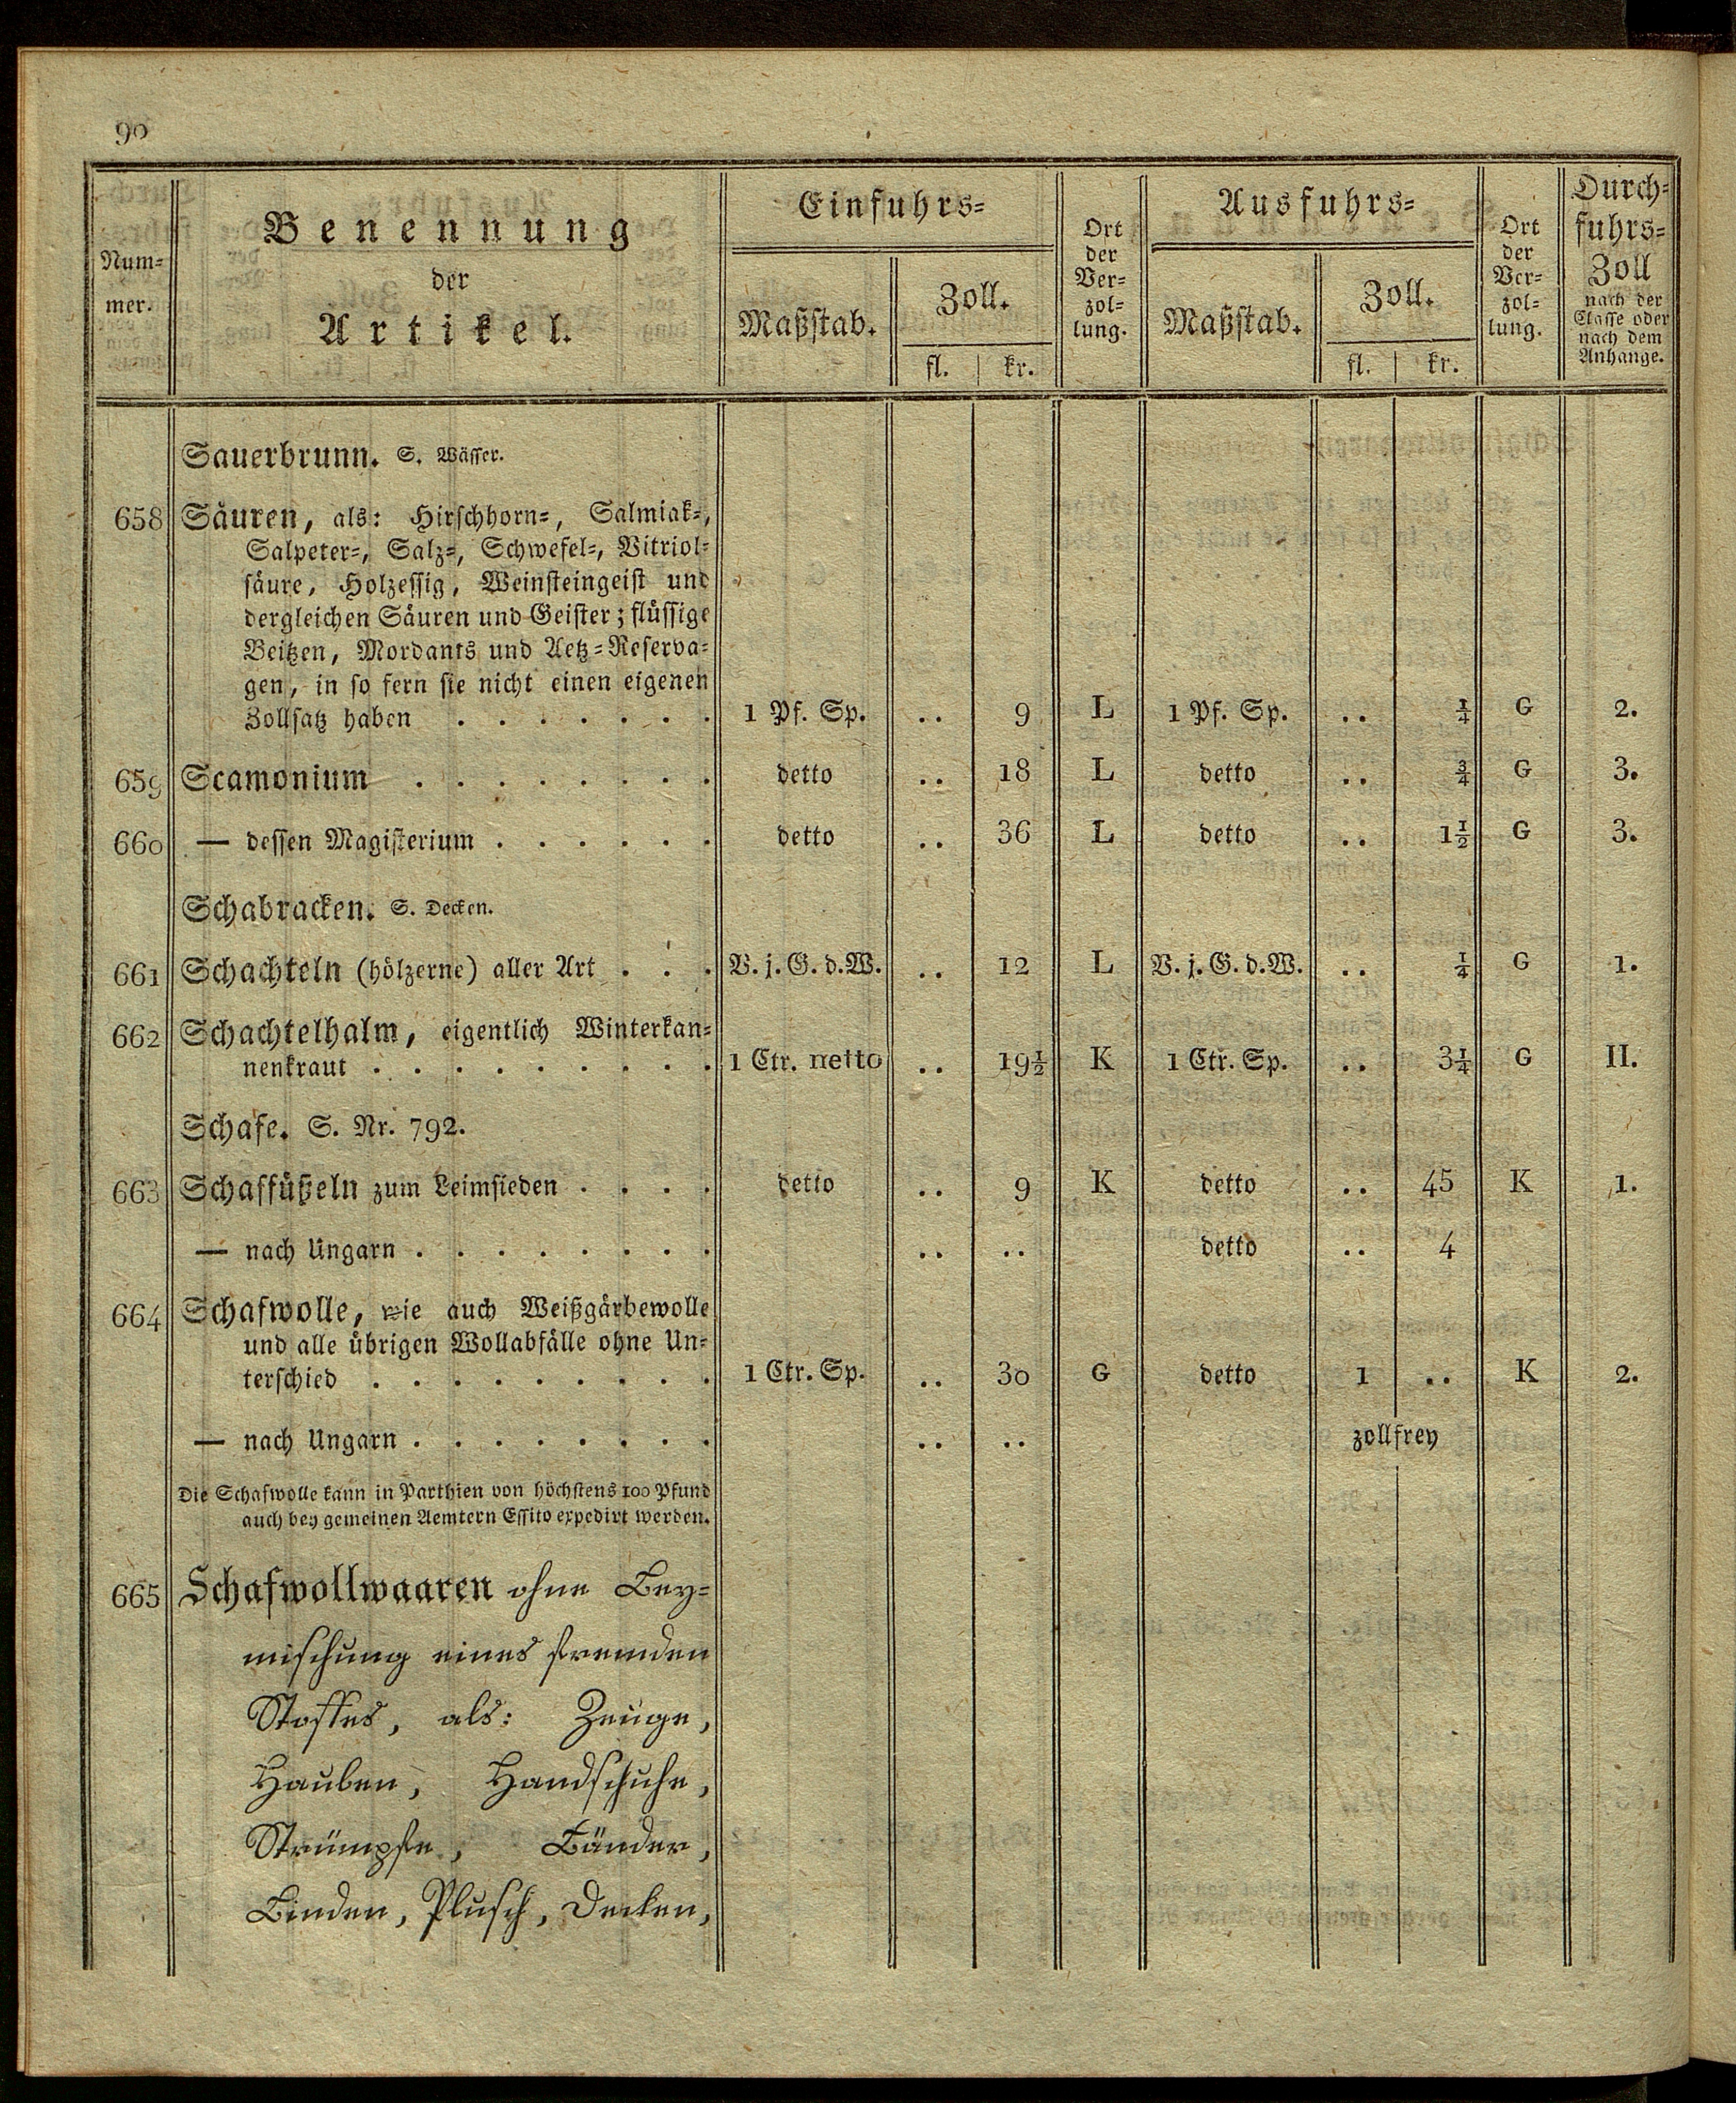 90
Num-
mer.
Benennung
der
Artikel.
Einfuhrs-
Maßstab.
Zoll.
fl. | kr.
Ort
der
Ver-
zol-
lung.
Ausfuhrs-
Maßstab.
Zoll.
fl. | kr.
Ort
der
Ver-
zol-
lung.
Durch-
fuhrs-
Zoll
nach der
Classe oder
nach dem
Anhange.
Sauerbrunn. S. Wässer.
658 Säuren, als: Hirschhorn-, Salmiak-,
Salpeter-, Salz-, Schwefel-, Vitriol-
säure, Holzessig, Weinsteingeist und
dergleichen Säuren und Geister; flüssige
Beitzen, Mordants und Aetz-Reserva-
gen, in so fern sie nicht einen eigenen
Zollsatz haben . . . . . . . 1 Pf. Sp. .. 9 L 1 Pf. Sp. .. ¼ G 2.
659 Scamonium . . . . . . . . detto .. 18 L detto .. ¾ G 3.
660 — dessen Magisterium . . . . . . detto .. 36 L detto .. 1½ G 3.
Schabracken. S. Decken.
661 Schachteln (hölzerne) aller Art . . . V. j. G. d. W. .. 12 L V. j. G. d. W. .. ¼ G 1.
662 Schachtelhalm, eigentlich Winterkan-
nenkraut . . . . . . . . . 1 Ctr. netto .. 19½ K 1 Ctr. Sp. .. 3¼ G II.
Schafe. S. Nr. 792.
663 Schaffüßeln zum Leimsieden . . . . detto .. 9 K detto .. 45 K 1.
— nach Ungarn . . . . . . . . .. .. detto .. 4
664 Schafwolle, wie auch Weißgärbewolle
und alle übrigen Wollabfälle ohne Un-
terschied . . . . . . . . . 1 Ctr. Sp. .. 30 G detto 1 .. K 2.
— nach Ungarn . . . . . . . . .. .. zollfrey
Die Schafwolle kann in Parthien von höchstens 100 Pfund
auch bey gemeinen Aemtern Essito expedirt werden.
665 Schafwollwaaren ohne Bey-
mischung eines fremden
Stoffes, als: Zeuge,
Hauben, Handschuhe,
Strümpfe, Bänder,
Binden, Plusch, Decken,